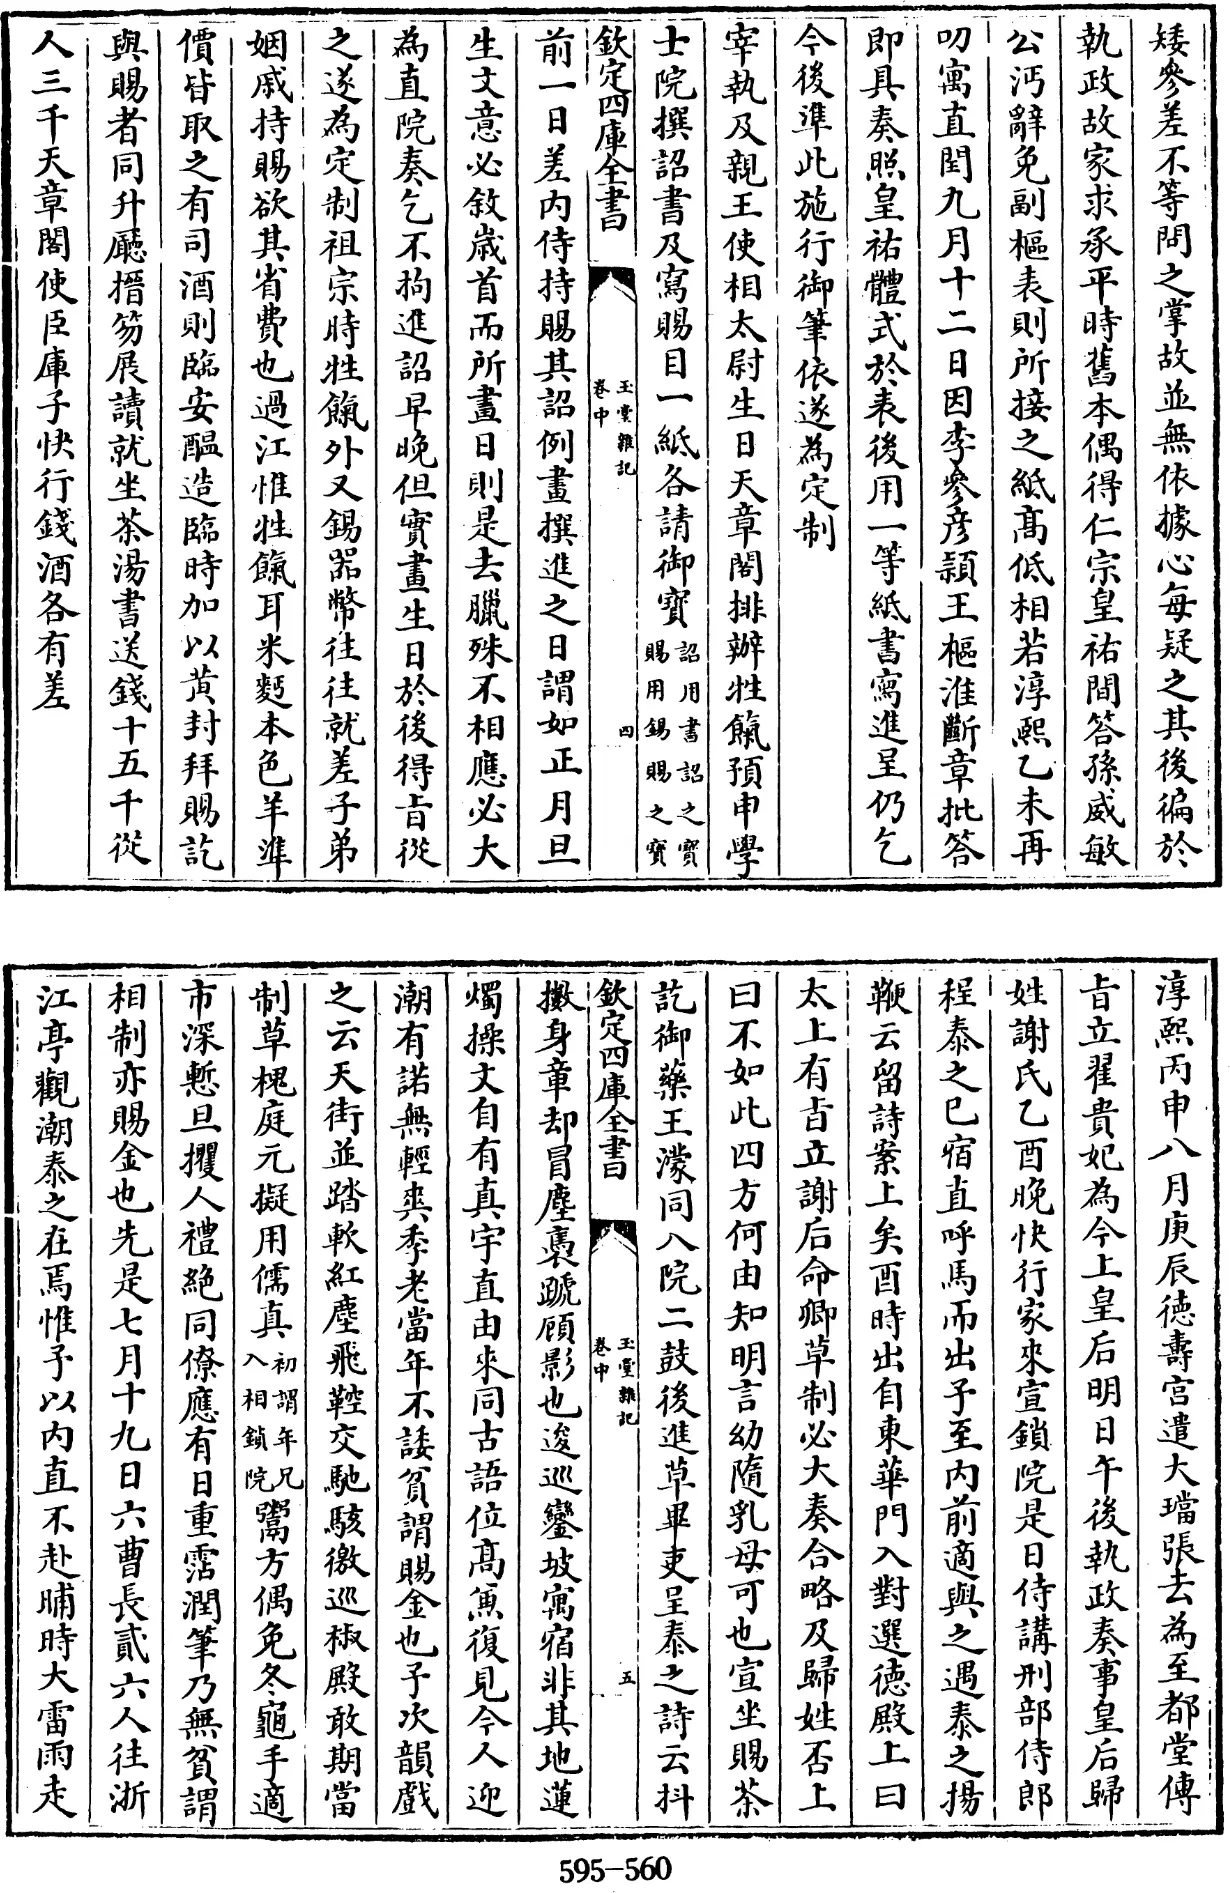 矮參差不等問之掌故並無依據心每疑之其後徧於
執政故家求承平時舊本偶得仁宗皇祐間答孫威敏
公沔辭免副樞表則所接之紙髙低相若淳熙乙未再
叨寓直閏九月十二日因李參彦頴王樞淮斷章批答
即具奏照皇祐體式於表後用一等紙書寫進呈仍乞
今後準此施行御筆依遂為定制
宰執及親王使相太尉生日天章閣排辦牲餼預申學
士院撰詔書及寫賜目一紙各請御寳詔用書詔之寳賜用錫賜之寳
欽定四庫全書
玉堂雜記
卷中
四
前一日差内侍持賜其詔例畫撰進之日謂如正月旦
生文意必敘歳首而所畫日則是去臘殊不相應必大
為直院奏乞不拘進詔早晚但實畫生日於後得㫖從
之遂為定制祖宗時牲餼外又錫器幣往往就差子弟
姻戚持賜欲其省費也過江惟牲餼耳米麪本色羊準
價皆取之有司酒則臨安醖造臨時加以黄封拜賜訖
與賜者同升廳搢笏展讀就坐茶湯書送錢十五千從
人三千天章閣使臣庫子快行錢酒各有差
淳熙丙申八月庚辰德壽宫遣大璫張去為至都堂傳
㫖立翟貴妃為今上皇后明日午後執政奏事皇后歸
姓謝氏乙酉晚快行家來宣鎖院是日侍講刑部侍郎
程泰之已宿直呼馬而出予至内前適與之遇泰之揚
鞭云留詩案上矣酉時出自東華門入對選德殿上曰
太上有㫖立謝后命卿草制必大奏合略及歸姓否上
曰不如此四方何由知明言幼隨乳母可也宣坐賜茶
訖御藥王濛同入院二鼓後進草畢吏呈泰之詩云抖
欽定四庫全書
玉堂雜記
卷中
五
擻身章却冒塵褭蹏顧影也逡巡鑾坡寓宿非其地蓮
燭操文自有真宇直由來同古語位髙魚復見今人迎
潮有諾無輕爽季老當年不諉貧謂賜金也予次韻戲
之云天街並踏軟紅塵飛鞚交馳駭徼巡椒殿敢期當
制草槐庭元擬用儒真初謂年兄入相鎖院鬻方偶免冬龜手適
市深慙旦攫人禮絶同僚應有日重霑潤筆乃無貧謂
相制亦賜金也先是七月十九日六曹長貳六人往浙
江亭觀潮泰之在焉惟予以内直不赴晡時大雷雨走
595-560